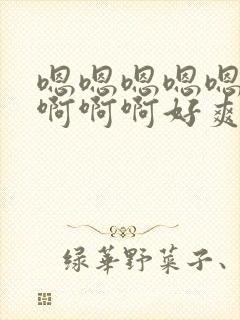 嗯嗯嗯嗯嗯
啊啊啊好爽
绿华野菜子、